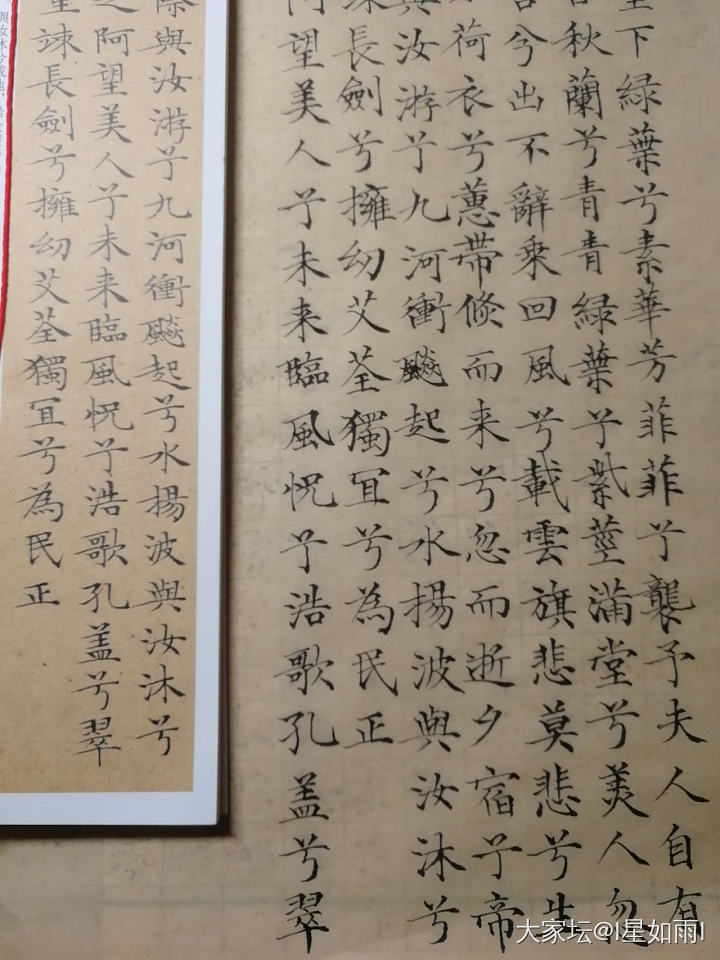 下綠葉兮素華芳菲菲兮襲予夫人自有
秋蘭兮青青綠葉兮紫莖滿堂兮美人忽
兮出不辭乘回風兮載雲旗悲莫悲兮生
荷衣兮蕙帶倏而来兮忽而逝夕宿兮帝
與汝游兮九河衝飇起兮水揚波與汝沐兮
竦長劍兮擁幼艾荃獨冝兮為民正
阿望美人兮未来臨風怳兮浩歌孔盖兮翠
際與汝游兮九河衝飇起兮水揚波與汝沐兮
之阿望美人兮未来臨風怳兮浩歌孔盖兮翠
竦長劍兮擁幼艾荃獨冝兮為民正
與汝沐兮咸池
大家坛@l星如雨l